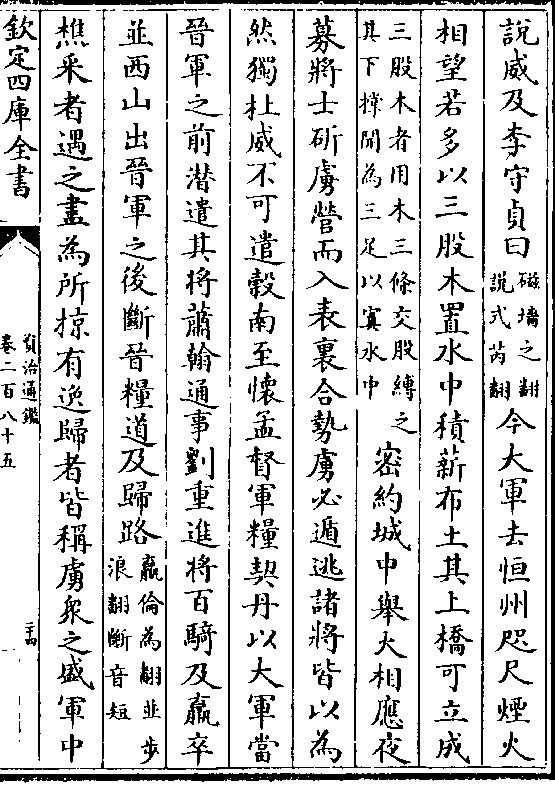 說威及李守貞曰磁墻之翻說式芮翻今大軍去恒州咫尺煙火
相望若多以三股木置水中積薪布土其上橋可立成
三股木者用木三條交股縛之其下撑開為三足以寘水中密約城中舉火相應夜
募將士斫虜營而入表裏合勢虜必遁逃諸將皆以為
然獨杜威不可遣穀南至懷孟督軍糧契丹以大軍當
晉軍之前潜遣其將蕭翰通事劉重進將百騎及羸卒
並西山出晉軍之後斷晉糧道及歸路羸倫為翻並步浪翻斷音短
樵采者遇之盡為所掠有逸歸者皆稱虜衆之盛軍中
欽定四庫全書
資治通鑑
卷二百八十五
二十四